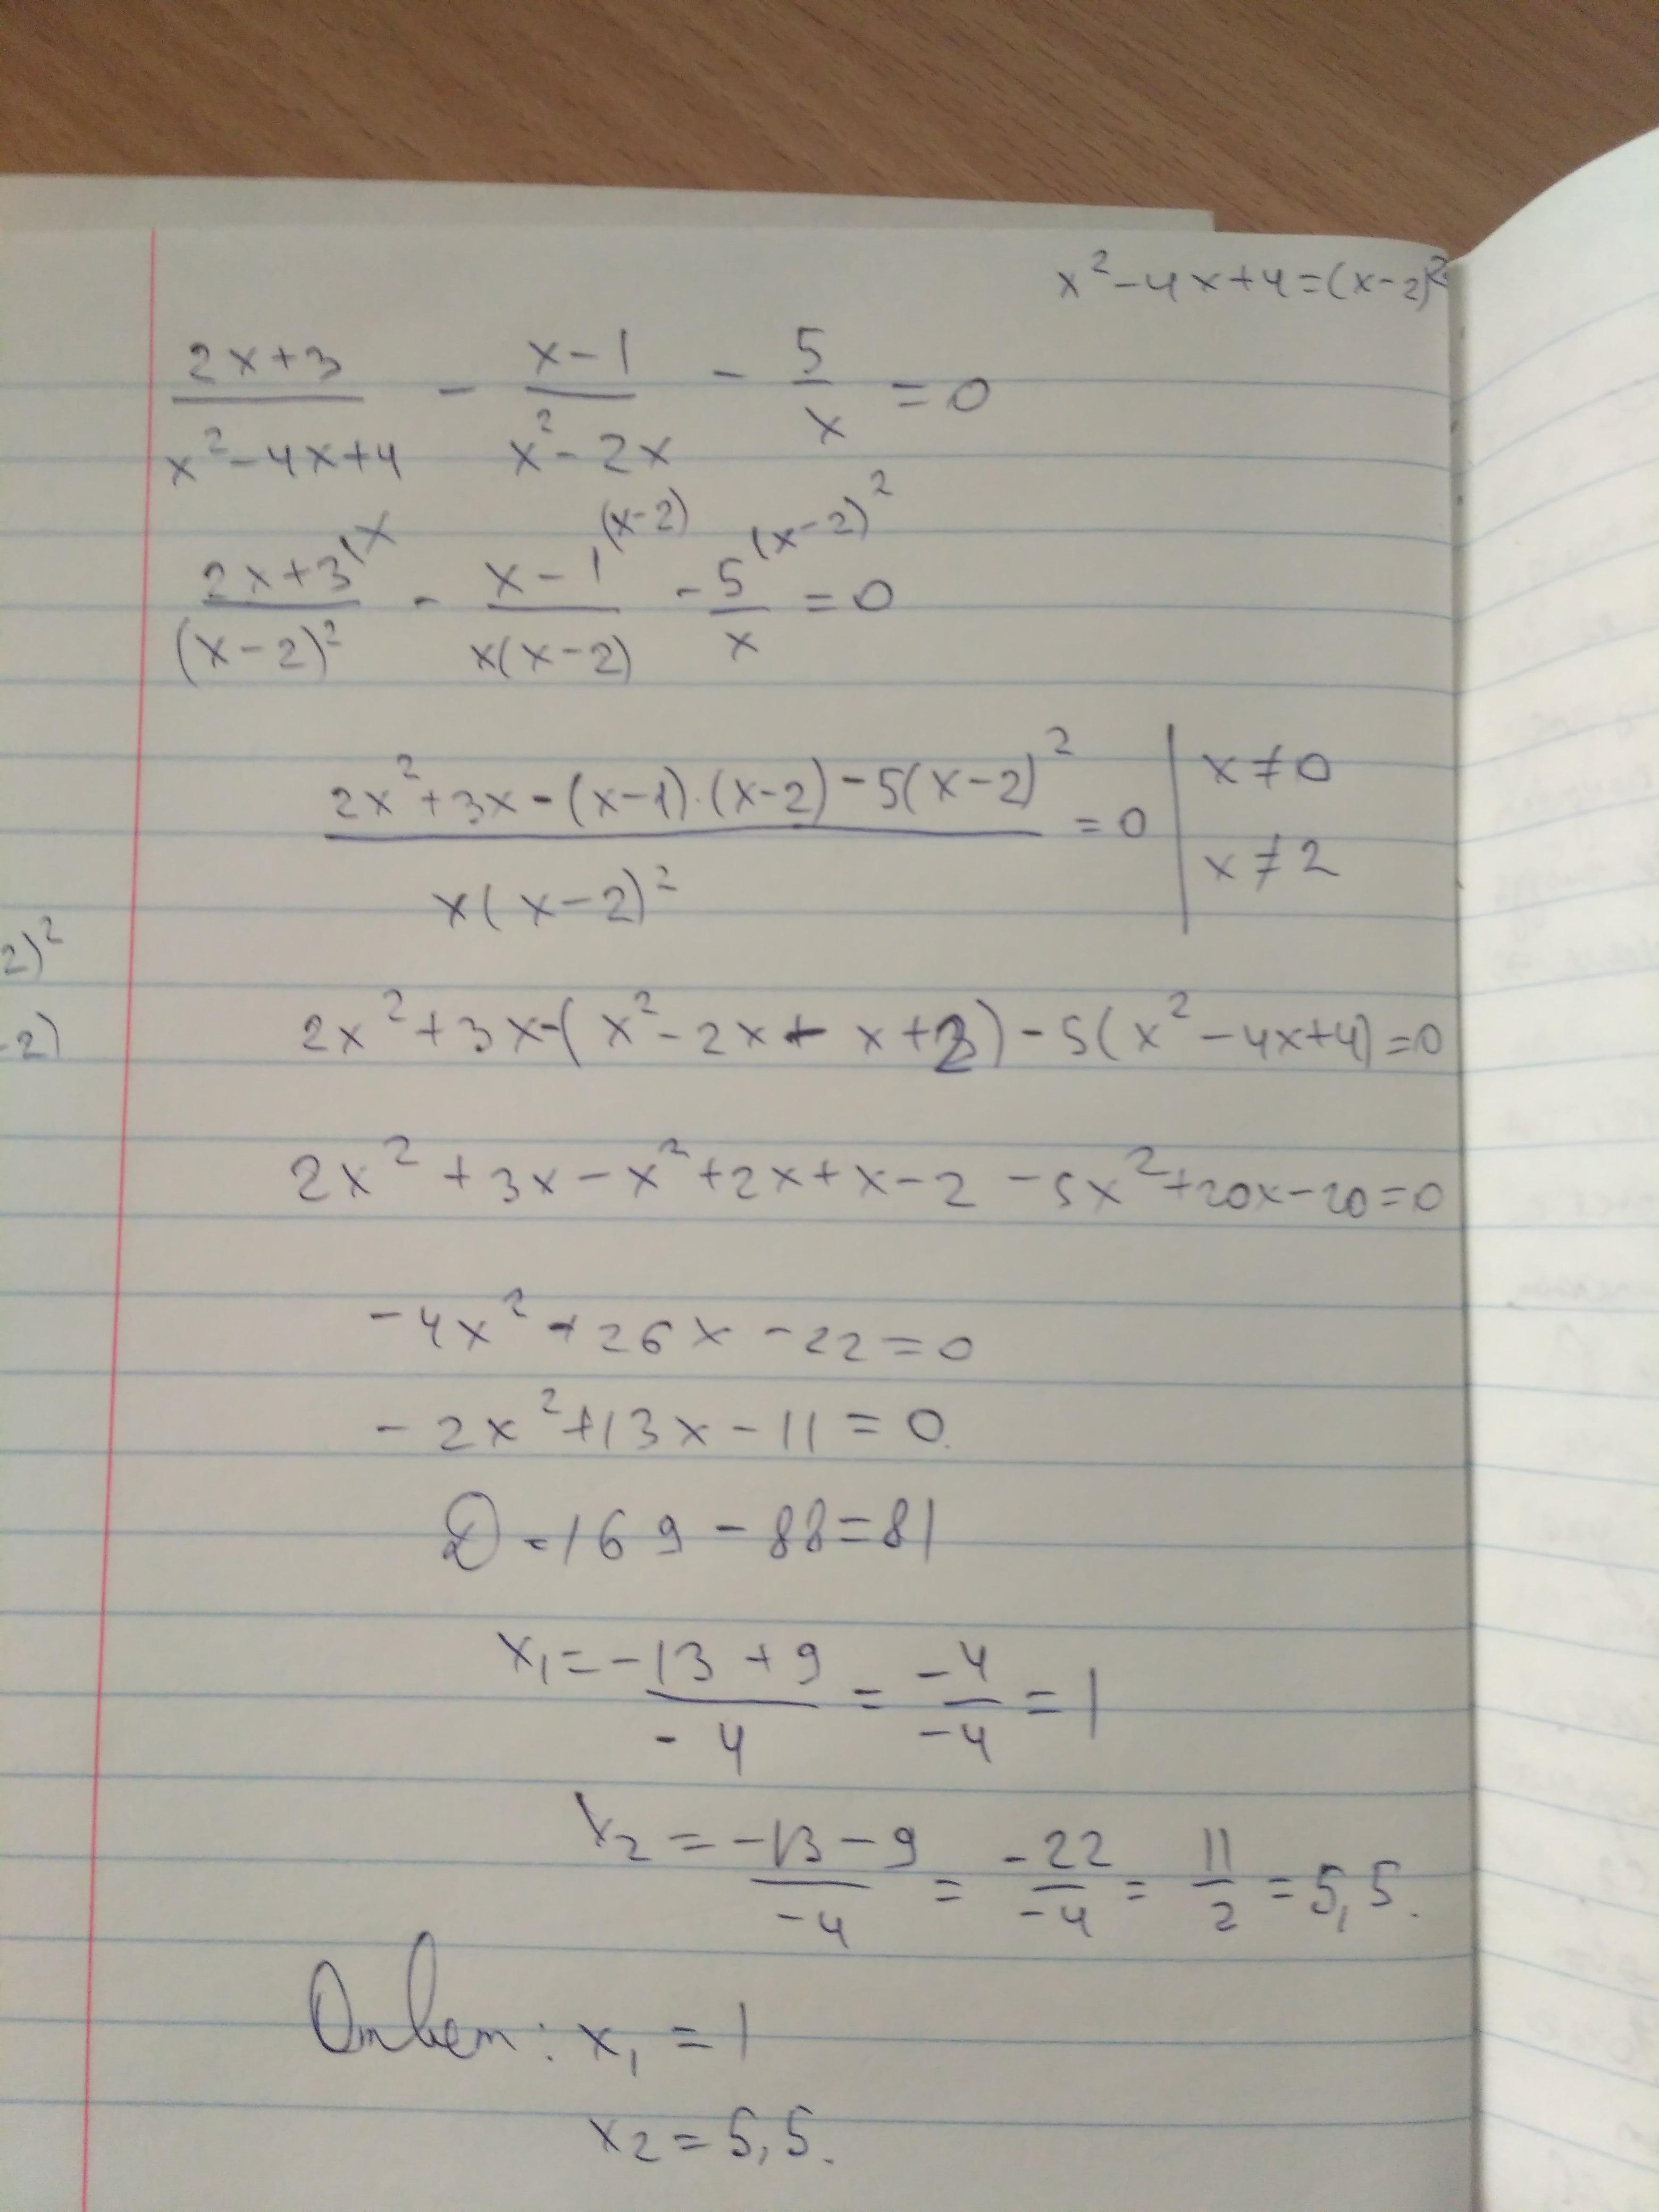 x² - 4x + 4 = (x-2)²
(2x+3)/(x²-4x+4) - (x-1)/(x²-2x) - 5/x = 0
(2x+3)/(x-2)² (x - (x-1)/(x(x-2)) (x-2) - 5/x (x-2)² = 0
(2x²+3x-(x-1)·(x-2)-5(x-2)²)/(x(x-2)²) = 0 | x≠0
x≠2
2)²
2x²+3x-(x²-2x-x+2)-5(x²-4x+4)=0
-2)
2x²+3x-x²+2x+x-2-5x²+20x-20=0
-4x²+26x-22=0
-2x²+13x-11=0.
D=169-88=81
x₁=(-13+9)/(-4)=(-4)/(-4)=1
x₂=(-13-9)/(-4)=(-22)/(-4)=11/2=5,5.
Ответ: x₁=1
x₂=5,5.